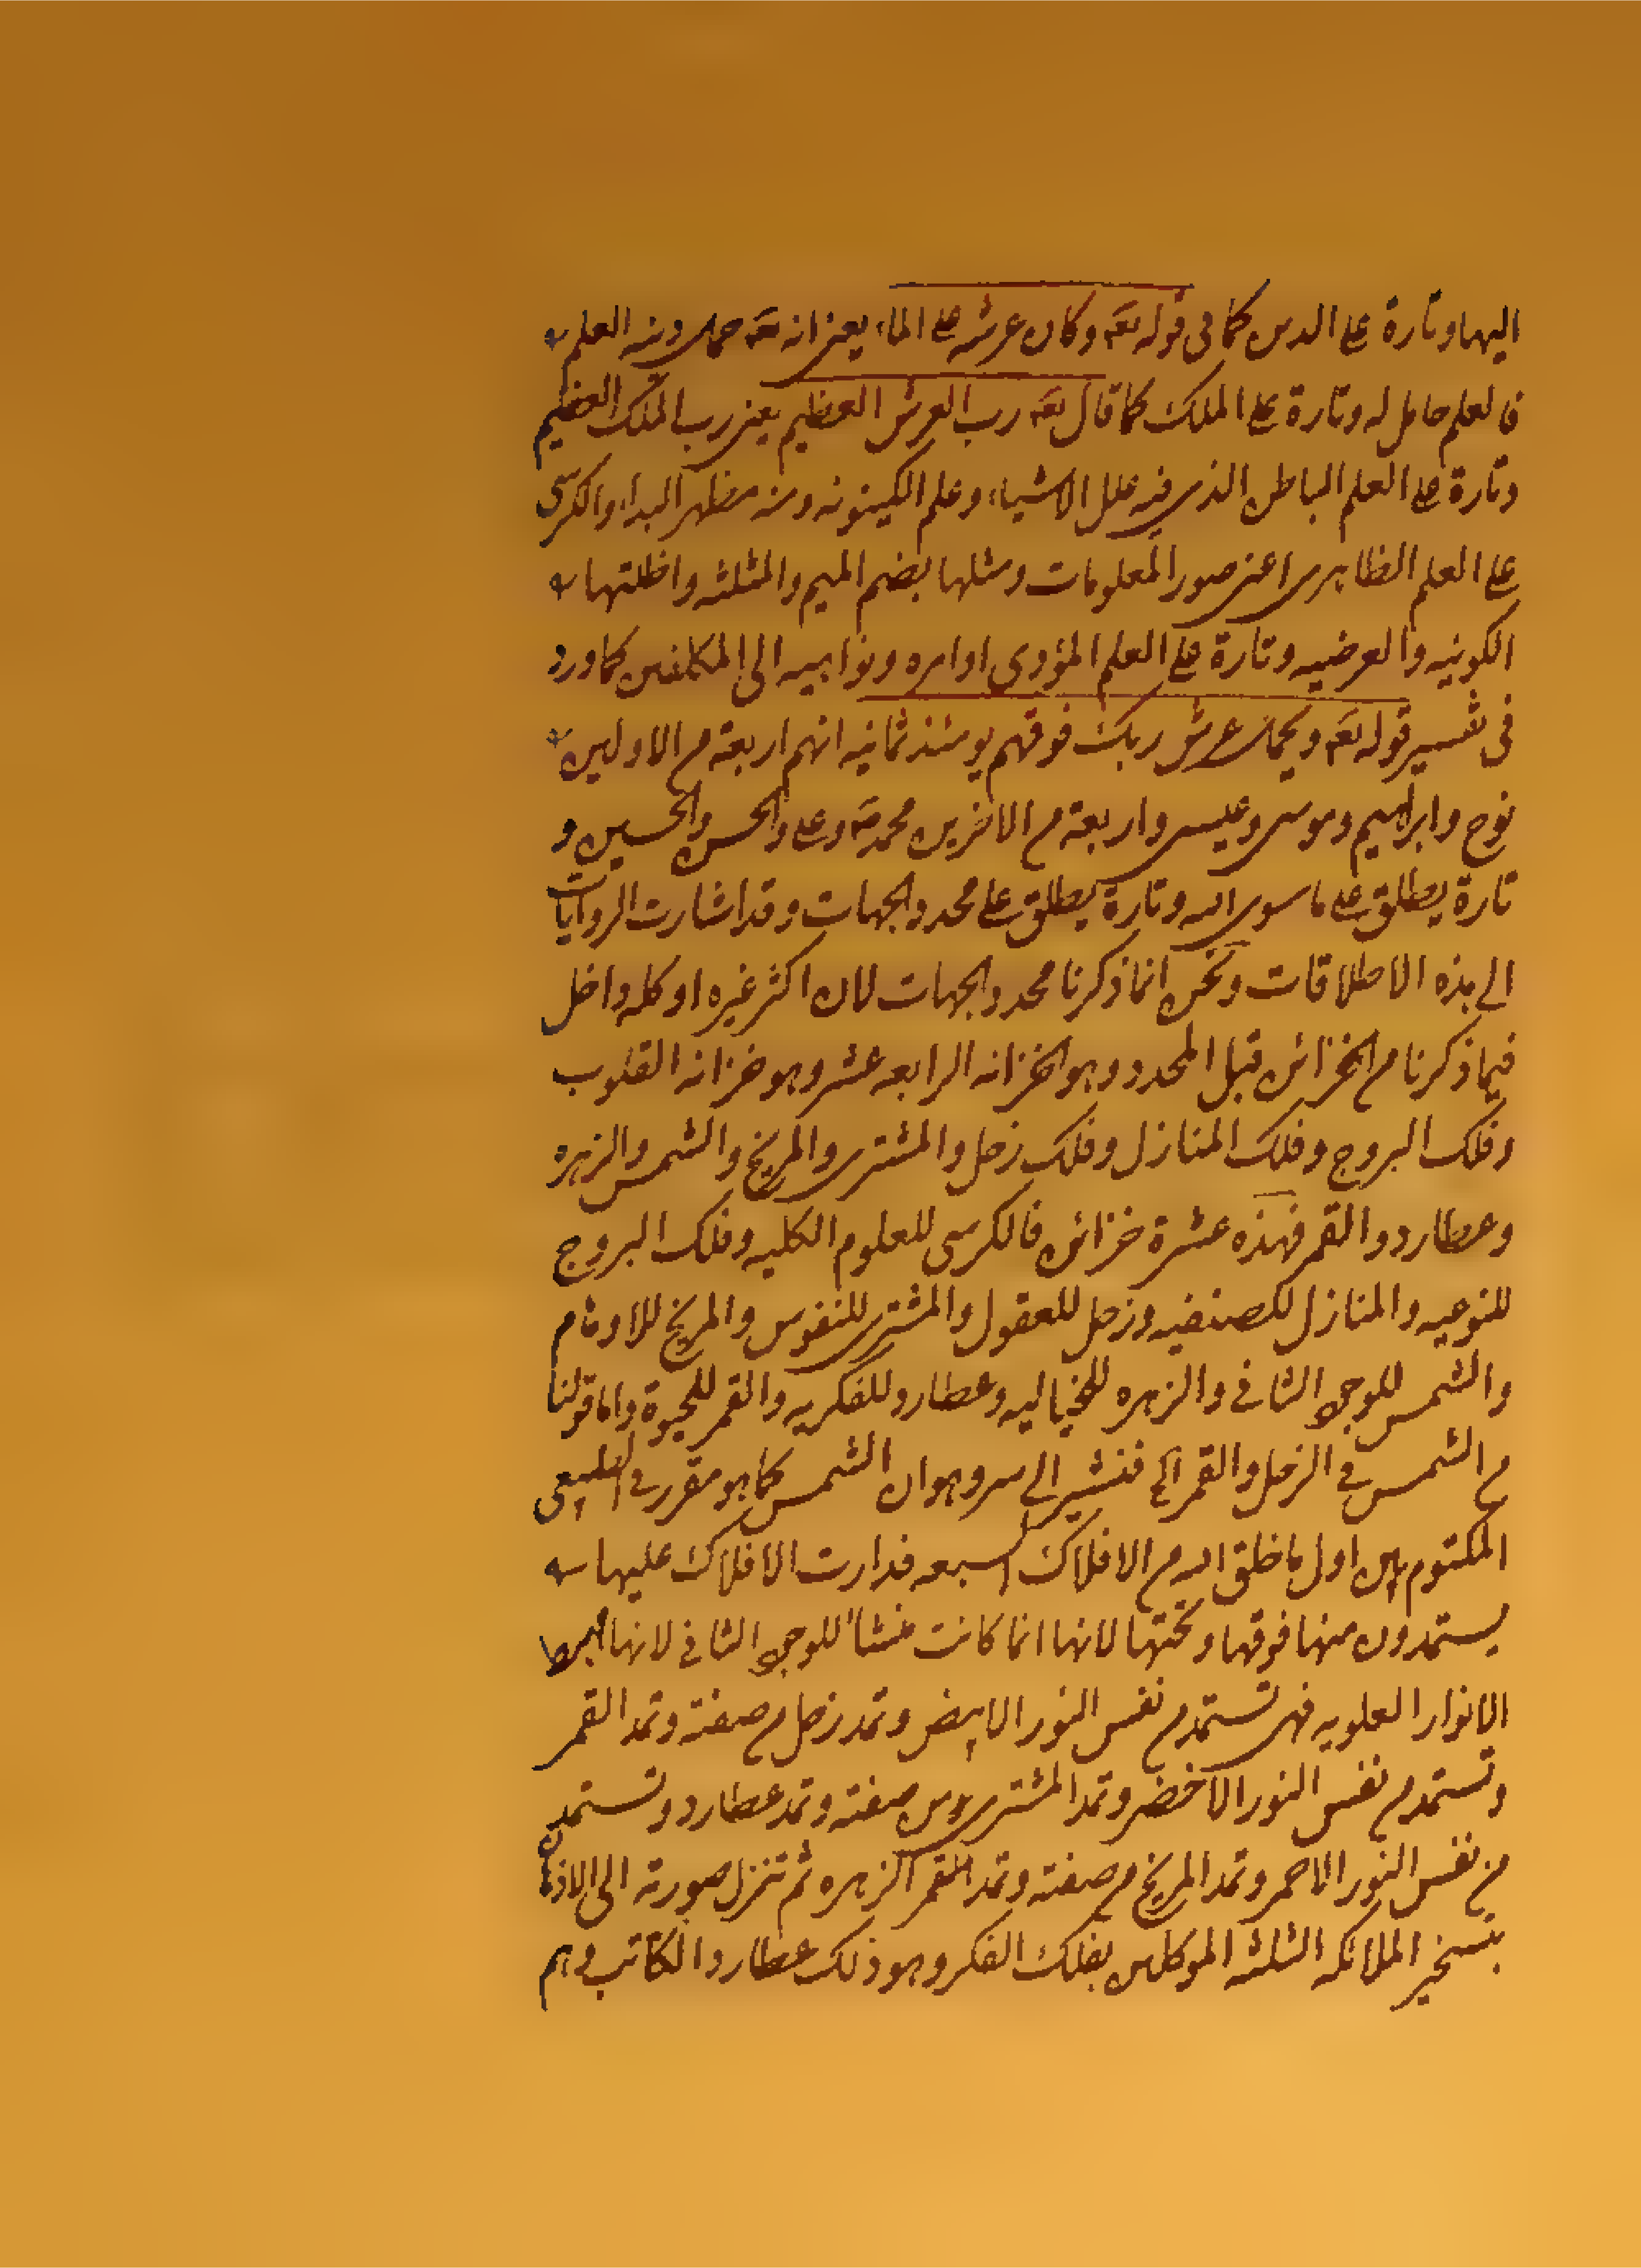 اليها وتارة على الدين كما فى قوله تعه وكان عرشه على الماء يعنى انه تعه حمل دينه العلم
فالعلم حامل له وتارة على الملك كما قال تعه رب العرش العظيم يعنى رب الملك العظيم
وتارة على العلم الباطن الذى فيه علل الاشياء وعلم الكينونه ومنه مظهر البداء والكرسى
على العلم الظاهرى اعنى صور المعلومات ومثلها بضم الميم والمثلثه واظلتها
الكونيه والعرضيه وتارة على العلم المؤدى اوامره ونواهيه الى المكلفين كما ورد
فى تفسير قوله تعه ويحمل عرش ربك فوقهم يومئذ ثمانيه انهم اربعة من الاولين
نوح وابراهيم وموسى وعيسى واربعة من الاخرين محمد صه وعلى والحسن والحسين و
تارة يطلق على ما سوى الله وتارة يطلق على محدد الجهات وقد اشارت الروايات
الى هذه الاطلاقات ونحن انما ذكرنا محدد الجهات لان اكثر غيره او كله داخل
فيما ذكرنا من الخزائن قبل المحدد وهو الخزانه الرابعه عشر وهو خزانه القلوب
وفلك البروج وفلك المنازل وفلك زحل والمشترى والمريخ والشمس والزهره
وعطارد والقمر فهذه عشرة خزائن فالكرسى للعلوم الكليه وفلك البروج
للنوعيه والمنازل للصنفيه وزحل للعقول والمشترى للنفوس والمريخ للاوهام
والشمس للوجود الثانى والزهره للخياليه وعطارد للفكريه والقمر للحيوة واما قولنا
من الشمس فى الزحل والقمر الخ فنشير الى سر وهو ان الشمس كما هو مقرر فى الطبيعى
المكتوم هى اول ما خلق الله من الافلاك السبعه فدارت الافلاك عليها
يستمدون منها فوقها وتحتها لانها انما كانت منشأ للوجود الثانى لانها مهبط
الانوار العلويه فهى تستمد من نفس النور الابيض وتمد زحل من صفته وتمد القمر
وتستمد من نفس النور الاخضر وتمد المشترى من صفته وتمد عطارد وتستمد
من نفس النور الاحمر وتمد المريخ من صفته وتمد القمر الزهره ثم تنزل صورته الى الاذهان
بتسخير الملائكه الثلثه الموكلين بفلك الفكر وهو ذلك عطارد الكاتب وهم